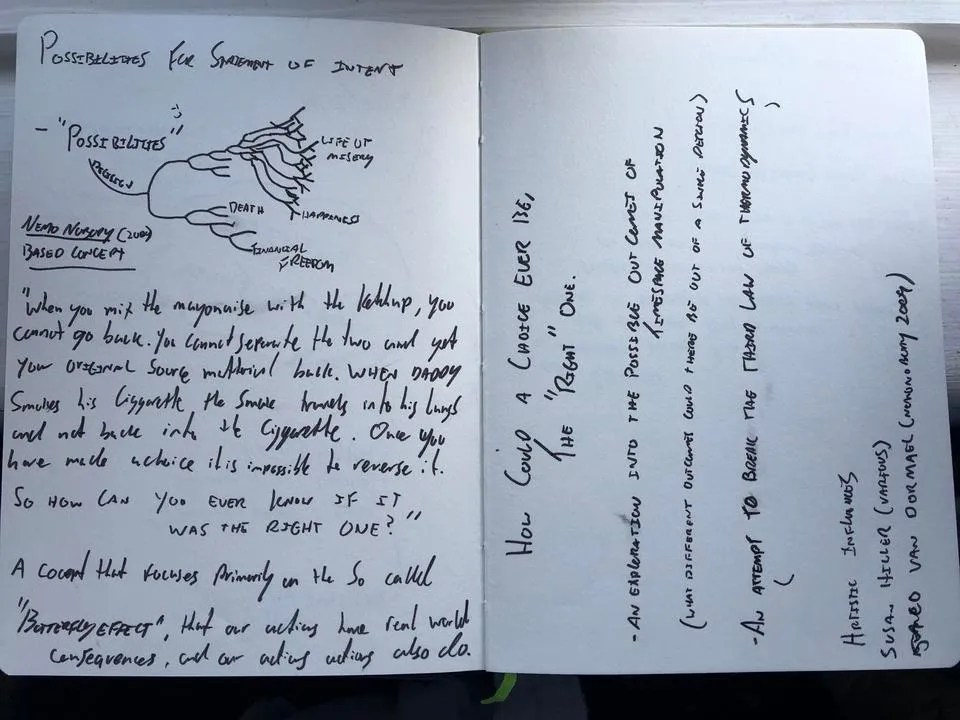 POSSIBILITIES FOR STATEMENT OF INTENT
- "POSSIBILITIES"
DECISION
LIFE OF
MISERY
DEATH
HAPPINESS
FINANCIAL
FREEDOM
NEMO NOBODY (2009)
BASED CONCEPT
"When you mix the mayonaise with the ketchup, you
cannot go back. You cannot seperate the two and get
your ORIGINAL source material back. WHEN DADDY
Smokes his Ciggarette the Smoke travels into his lungs
and not back into the Ciggarette. Once you
have made a choice it is impossible to reverse it.
SO HOW CAN YOU EVER KNOW IF IT
WAS THE RIGHT ONE?"
A cocept that focuses primarily on the So called
"BUTTERFLY EFFECT", that our actions have real world
consequences, and our acting actions also do.
HOW COULD A CHOICE EVER BE,
THE "RIGHT" ONE.
- AN EXPLORATION INTO THE POSSIBLE OUTCOMES OF
TIMESPACE MANIPULATION
(WHAT DIFFERENT OUTCOMES COULD THERE BE OUT OF A SINGLE DECISION)
- AN ATTEMPT TO BREAK THE THIRD LAW OF THERMODYNAMICS
( )
ARTISTIC INFLUENCES
SUSAN HILLER (VARIOUS)
JACO VAN DORMAEL (MR NOBODY 2009)